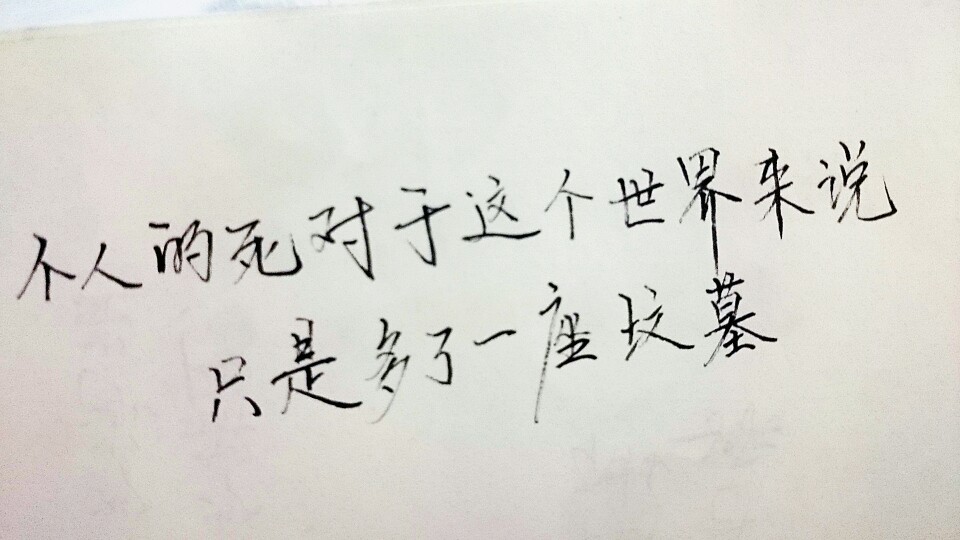 个人的死对于这个世界来说
只是多了一座坟墓